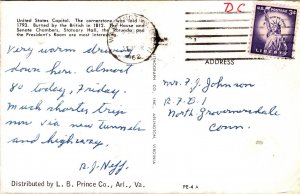 United States Capitol. The cornerstone was laid in
1793. Burned by the British in 1812. The House and
Senate Chambers, Statuary Drive, the Rotunda and
the President's Room are most interesting.
Very warm driving
down here. Almost
80 today, Friday.
Much shorter trip
now via new tunnels
and highway.
R.J. Neff
Distributed by L. B. Prince Co., Arl., Va.
D C
1962
3¢
LIBERTY
ADDRESS
Mr. F. J. Johnson
R. F. D. 1
North Grovenordale
Conn.
PE-4 A